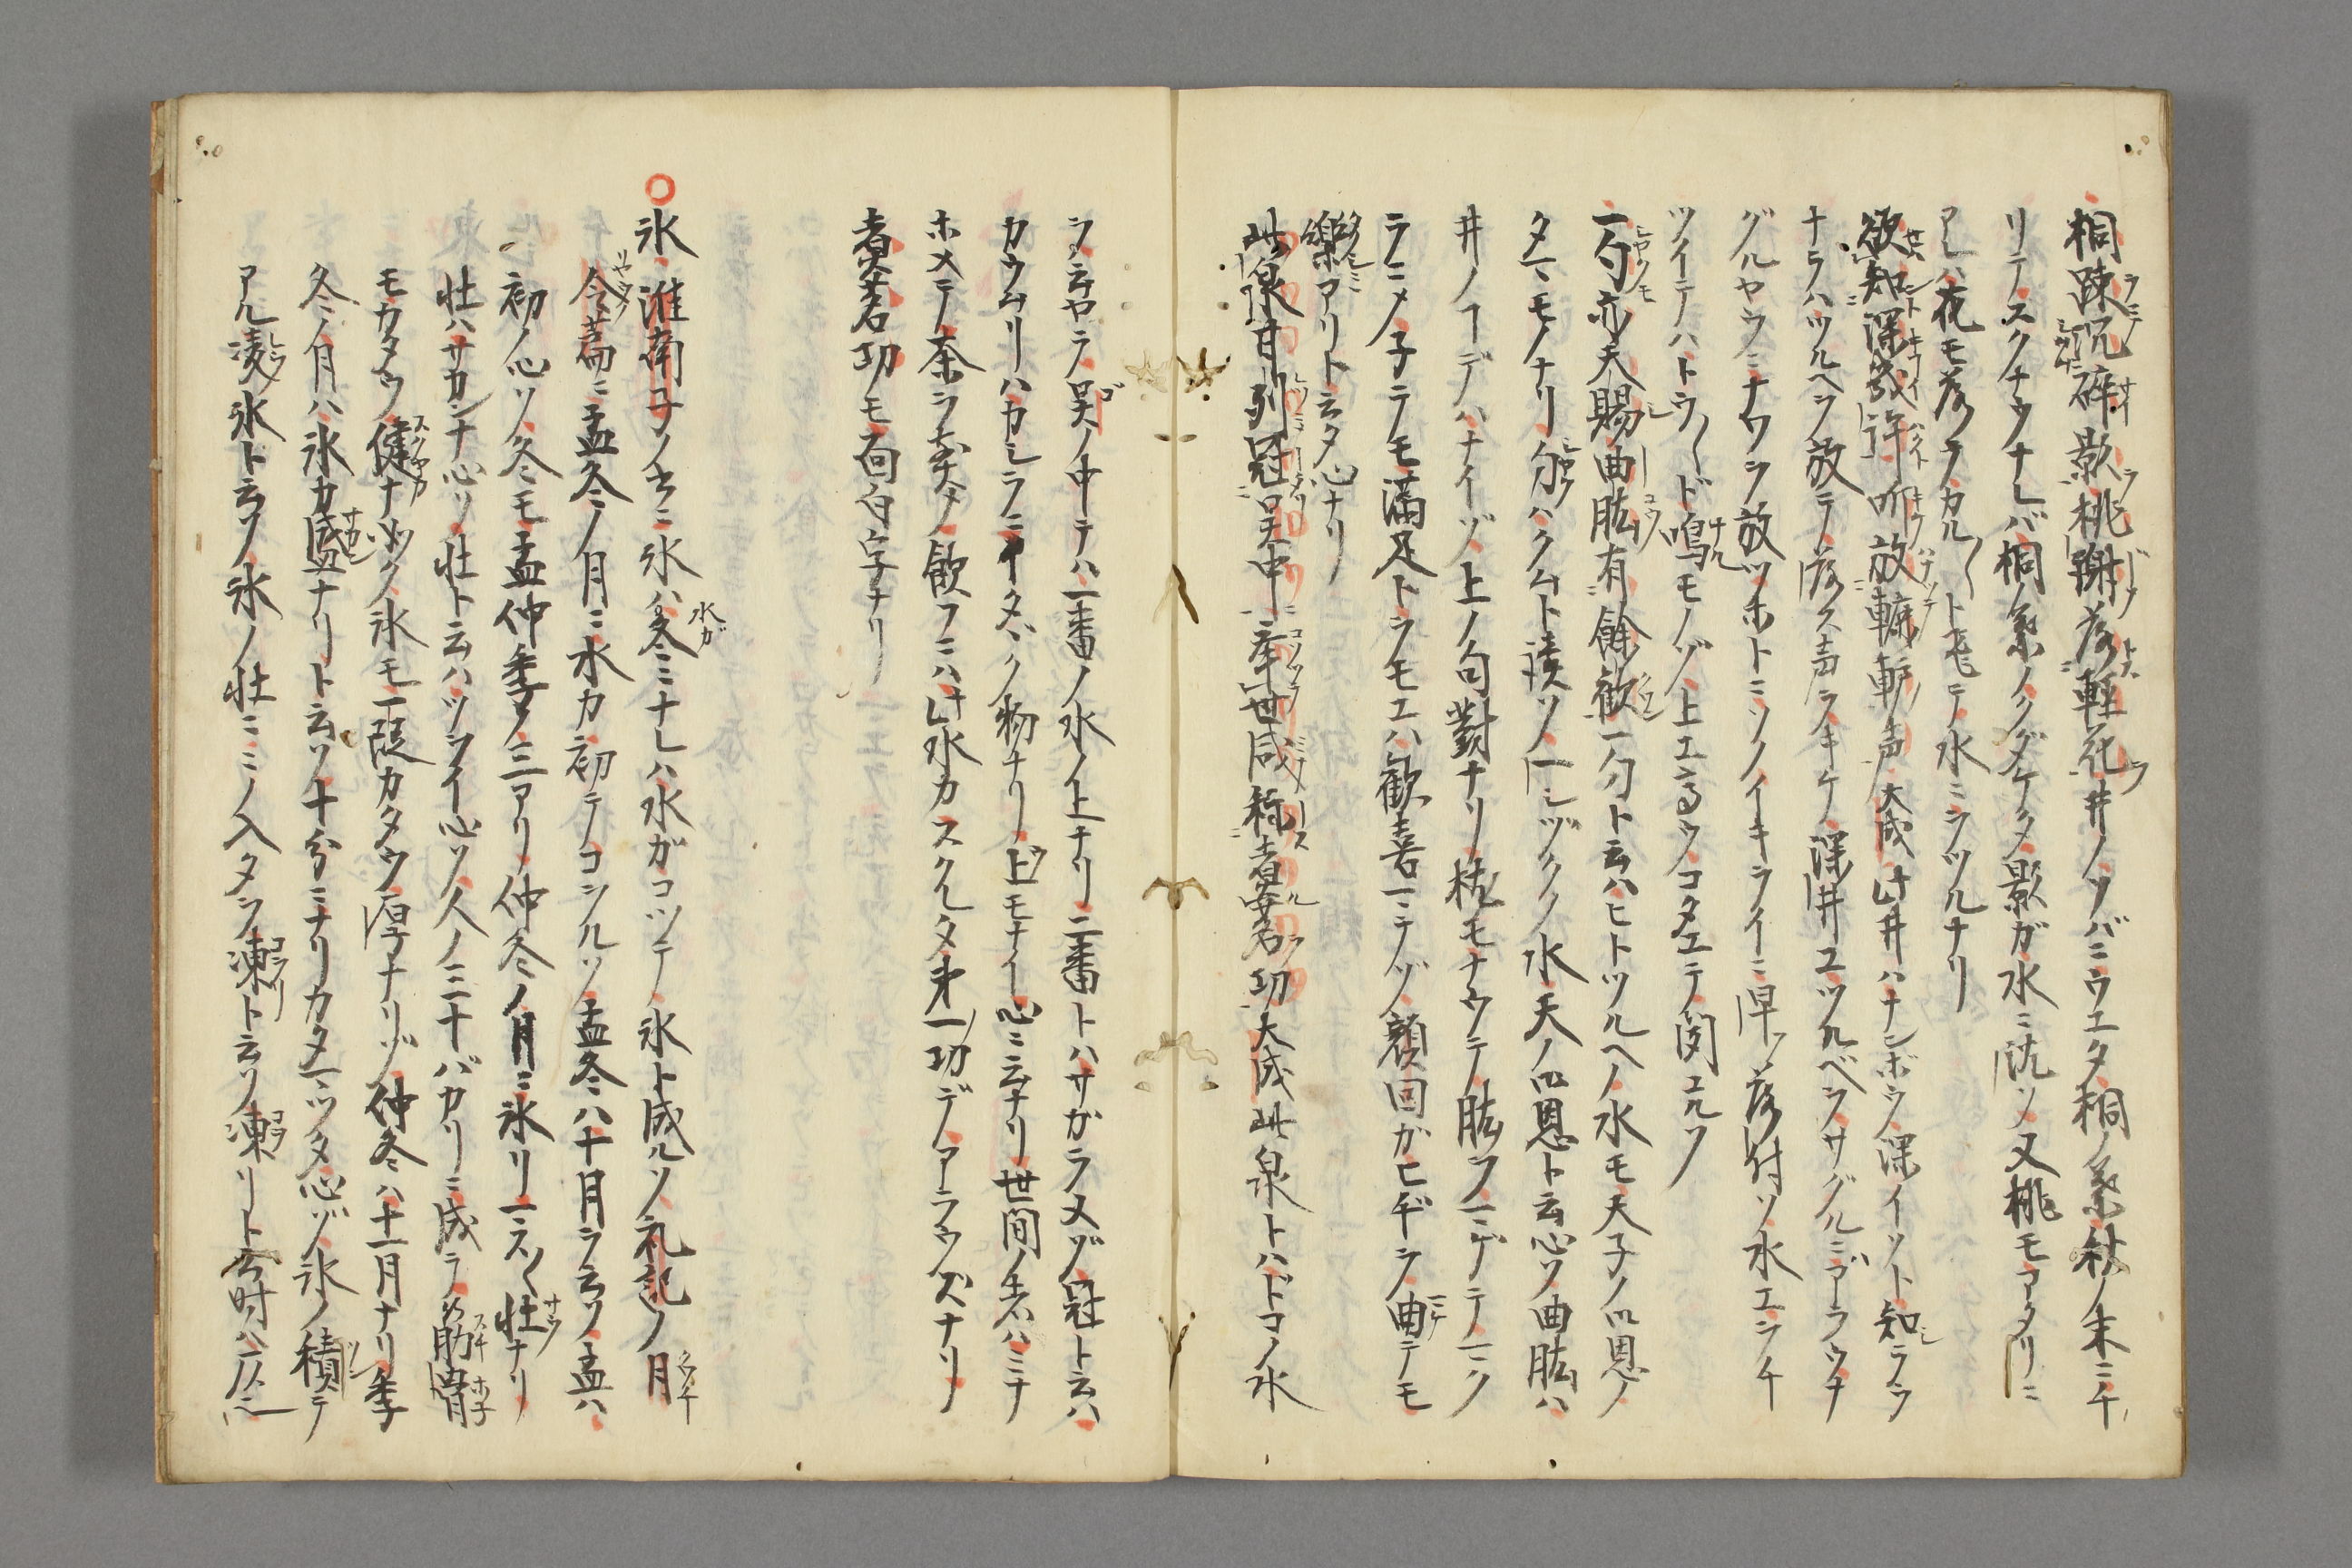 桐踈沉碎影桃謝落輕花井ノソバニウエタ桐ノ葉秋ノ末ニチ
リテスクナウナレバ桐葉ノクダケタ影ガ水ニ沈ソ又桃モアタリニ
アレハ花モ落テカル〱ト飛テ水ニシツルナリ
欲知深幾許听放轆轤声大成此井ハナンボウ深イソト知ラウ
ナラハツルヘヲ放テ落ス声ヲキケ深井エツルベヲサグルニアラウチ
グルヤウニナワヲ放ツホトニソノイキライニ早ク落付ソ水エシチ
ツイテハトウ〱ド鳴モノゾ上エ高ウコタエテ聞エルソ
一勺亦天賜曲肱有餘歡一勺ト云ハヒトツルヘノ水モ天子ノ四恩ノ
タマモノナリ勺ハクムト讀ソ一シヅクノ水天ノ四恩ト云心ソ曲肱ハ
井ノ一デハナイゾ上ノ句對ナリ枕モナウテ肱ヲ一ニテノミク
ラニメ子テモ滿足トヲモエハ歡喜一ニテゾ顔回ガヒヂヲ曲テモ
樂アリト云タ心ナリ
此泉甘列冠呉中舉世咸称煮茗功大成此泉トハドコノ水
ヲ云ヤラ呉ノ中テハ一番ノ水ノ上ナリ二番トハサガラヌゾ冠ト云ハ
カウムリハカシラニイタヾク物ナリ上モナイ心ニ云ナリ世間ノ者ハミナ
ホメテ茶ヲ煎メ飲フニハ此水カスクレタ第一功デアラウズナリ
煮茗功モ面白字ナリ
○氷淮南子ノ云ニ氷ハ冬ニナレハ水ガコツテ氷ト成ルソ礼記ノ月
令篇ニ孟冬ノ月ニ水カ初テコヲルソ孟冬ハ十月ヲ云ソ孟ハ
初ノ心ソ冬モ孟仲季ノ三アリ仲冬ノ月ニ氷リ一入〱壮ナリ
壮ハサカンナ心ソ壮ト云ハツヨイ心ソ人ノ三十バカリニ成テ筋骨
モカタウ健ナソツク氷モ一段カタウ厚ナリゾ仲冬ハ十一月ナリ季
冬ノ月ハ氷カ盛ナリト云ソ十分ニナリカタマツタ心ゾ氷ノ積テ
アル凌氷ト云ソ氷ノ壮ニミノ入タヲ凍ト云ソ凍リト云時ハ